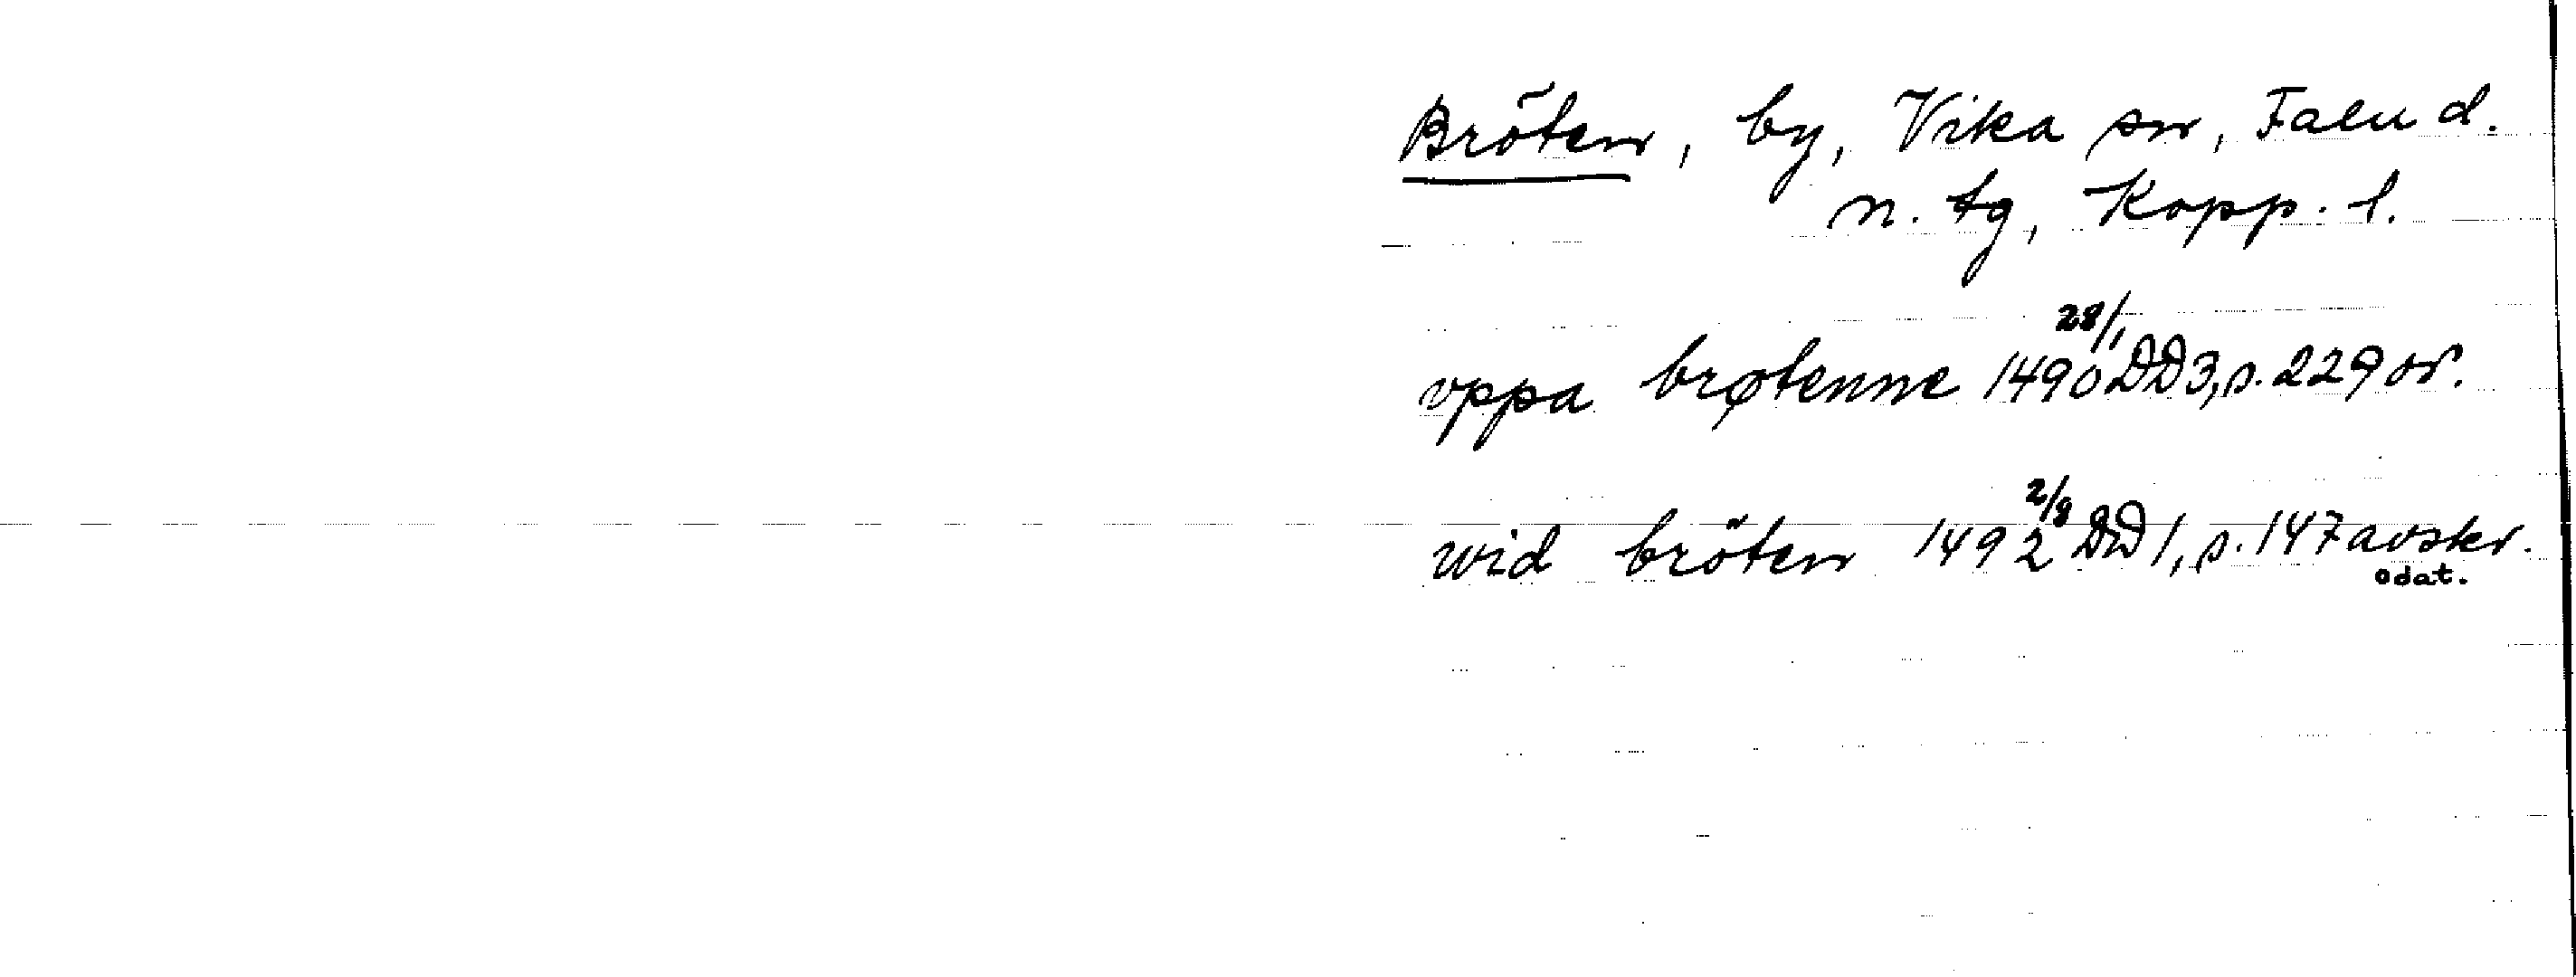 Bröten, by, Vika sn, Falu d.
n. tg, Kopp. l.
vppa brøtenne 1490 28/1 DD3, s. 229 or.
wid bröten 1492 2/8 DD1, s. 147 avskr.
odat.